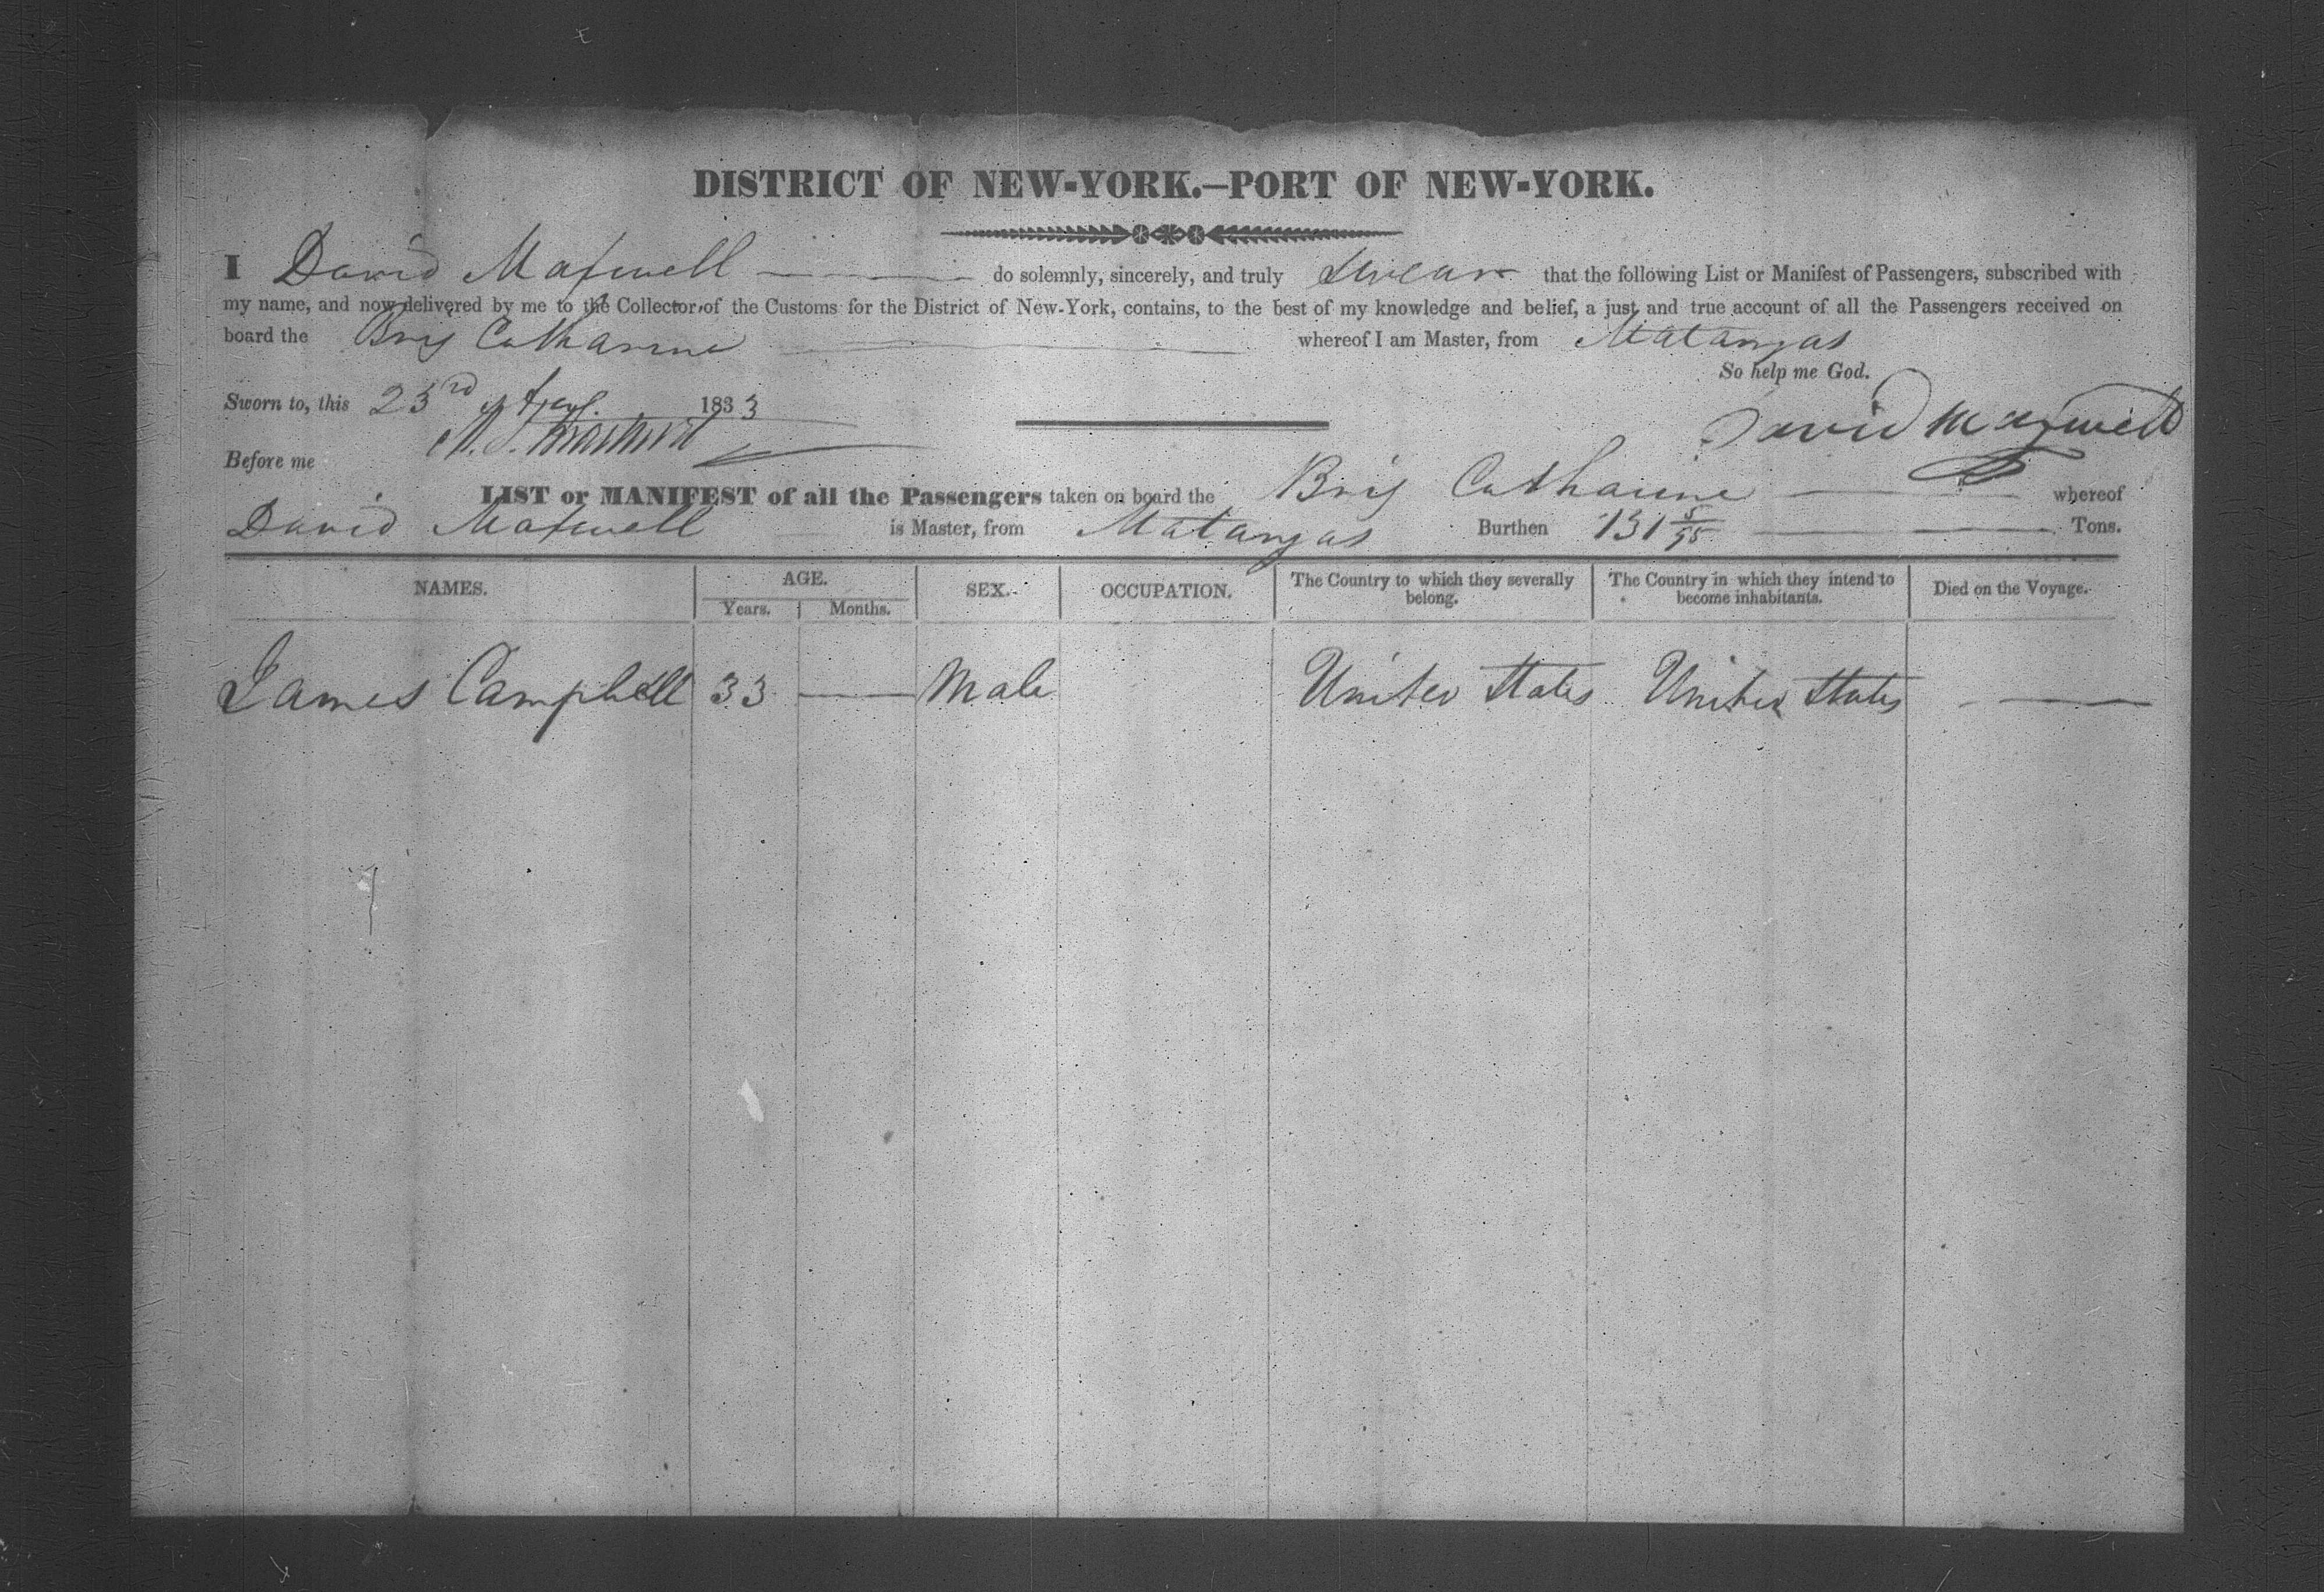 DISTRICT OF NEW-YORK.—PORT OF NEW-YORK.
I David Maxwell do solemnly, sincerely, and truly Swear that the following List or Manifest of Passengers, subscribed with
my name, and now delivered by me to the Collector of the Customs for the District of New-York, contains, to the best of my knowledge and belief, a just and true account of all the Passengers received on
board the Brig Catharine whereof I am Master, from Matanzas
So help me God.
Sworn to, this 23rd of Apl. 1833
David Maxwell
Before me
LIST or MANIFEST of all the Passengers taken on board the Brig Catharine whereof
David Maxwell is Master, from Matanzas Burthen 131 5/95 Tons.
NAMES. AGE. SEX. OCCUPATION. The Country to which they severally belong. The Country in which they intend to become inhabitants. Died on the Voyage.
Years. Months.
James Campbell 33 — Male United States United States —